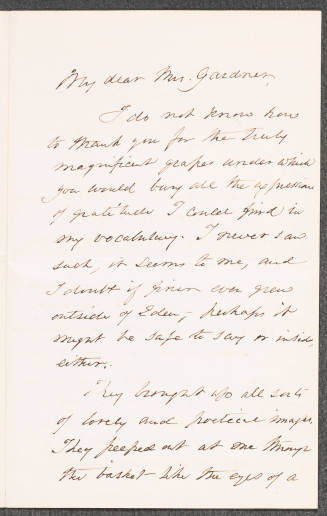 My dear Mrs. Gardner,
I do not know how
to thank you for the truly
magnificent grapes under which
you would bury all the expressions
of gratitude I could find in
my vocabulary. I never saw
such, it seems to me, and
I doubt if finer ever grew
outside of Eden,- perhaps it
might be safe to say or inside,
either.
They brought up all sorts
of lovely and poetical images.
They peeped out at me through
the basket like the eyes of a